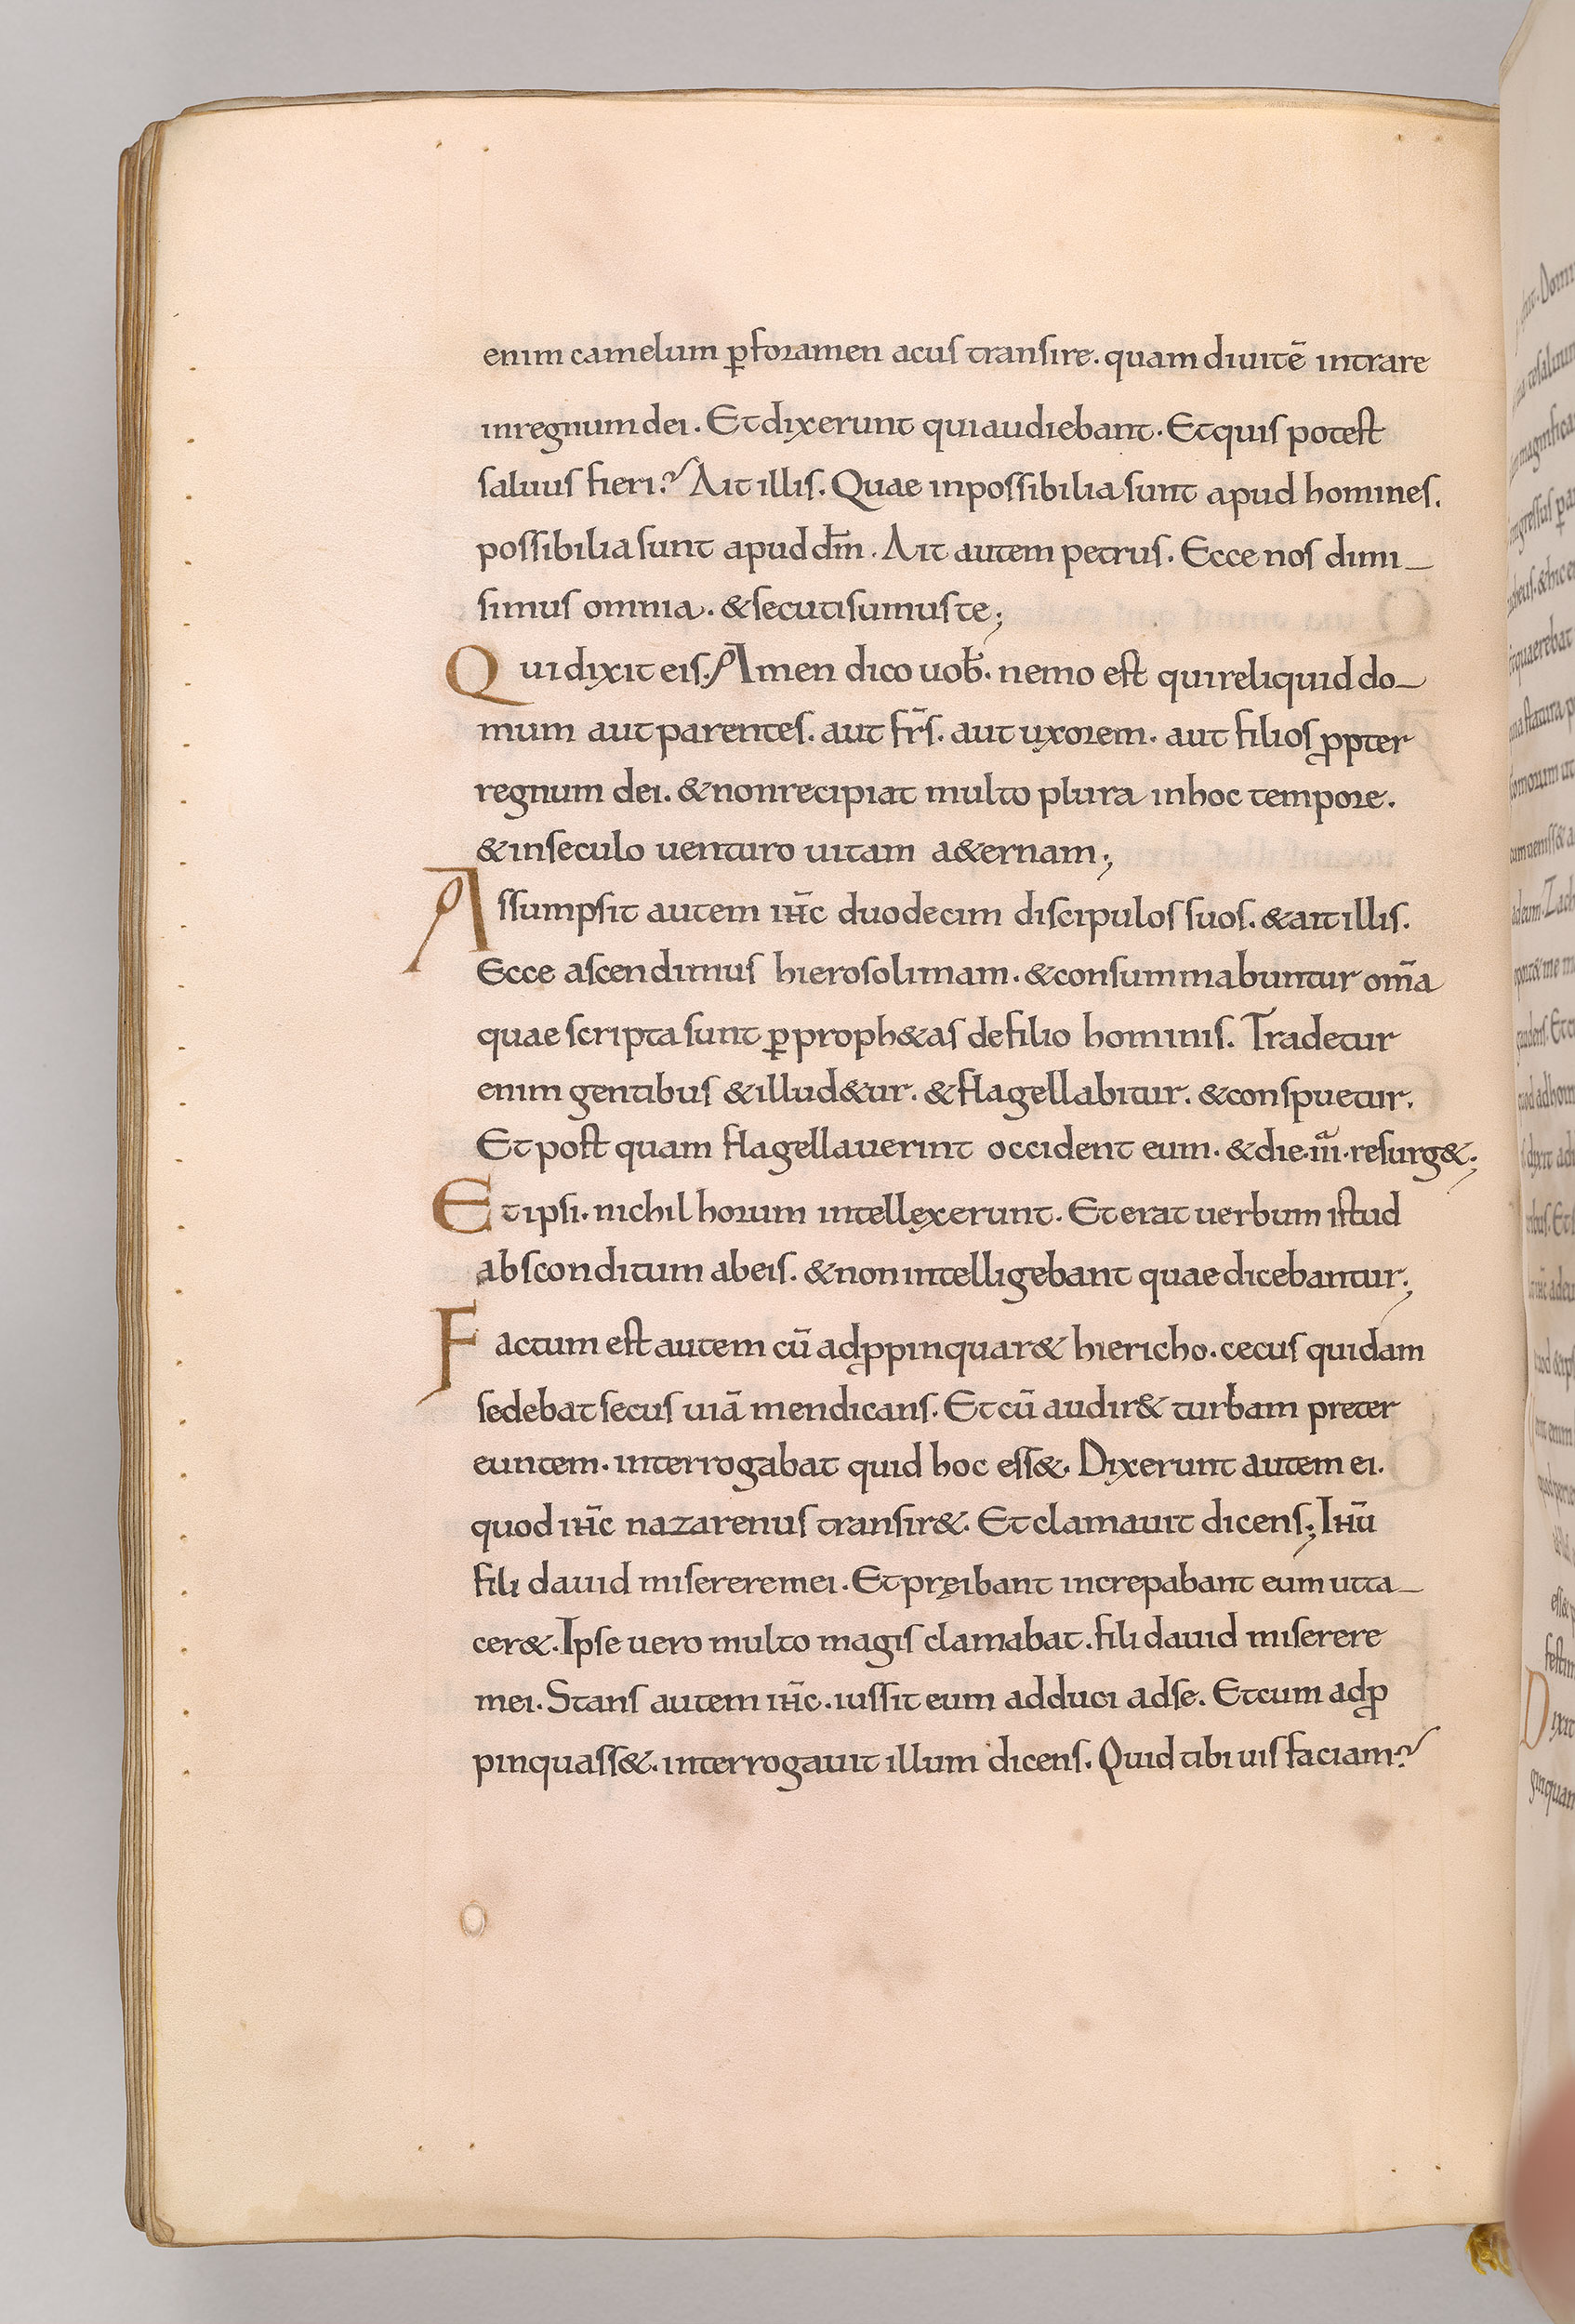 enim camelum ꝑforamen acus transire. quam diuitē intrare
inregnum dei. Et dixerunt qui audiebant. Et quis potest
saluus fieri? Ait illis. Quae inpossibilia sunt apud homines.
possibilia sunt apud dm̄. Ait autem petrus. Ecce nos dimi-
simus omnia. & secuti sumus te;
Qui dixit eis. Amen dico uob̄. nemo est qui reliquid do-
mum aut parentes. aut fr̄s. aut uxorem. aut filios ꝓpter
regnum dei. & non recipiat multo plura in hoc tempore.
& in seculo uenturo uitam a&ernam;
Assumpsit autem ih̄c duodecim discipulos suos. & ait illis.
Ecce ascendimus hierosolimam. & consummabuntur om̄a
quae scripta sunt ꝑ proph&as de filio hominis. Tradetur
enim gentibus & illud&ur. & flagellabitur. & conspuetur.
Et post quam flagellauerint occident eum. & die .iiiᵃ. resurg&;
Et ipsi. nichil horum intellexerunt. Et erat uerbum istud
absconditum ab eis. & non intelligebant quae dicebantur;
Factum est autem cū adꝓpinquar& hiericho. cecus quidam
sedebat secus uiā mendicans. Et cū audir& turbam preter
euntem. interrogabat quid hoc ess&. Dixerunt autem ei.
quod ih̄c nazarenus transir&. Et clamauit dicens; Ih̄u
fili dauid miserere mei. Et pręibant increpabant eum ut ta-
cer&. Ipse uero multo magis clamabat. fili dauid miserere
mei. Stans autem ih̄c. iussit eum adduci ad se. Et cum adꝓ
pinquass&. interrogauit illum dicens. Quid tibi uis faciam?